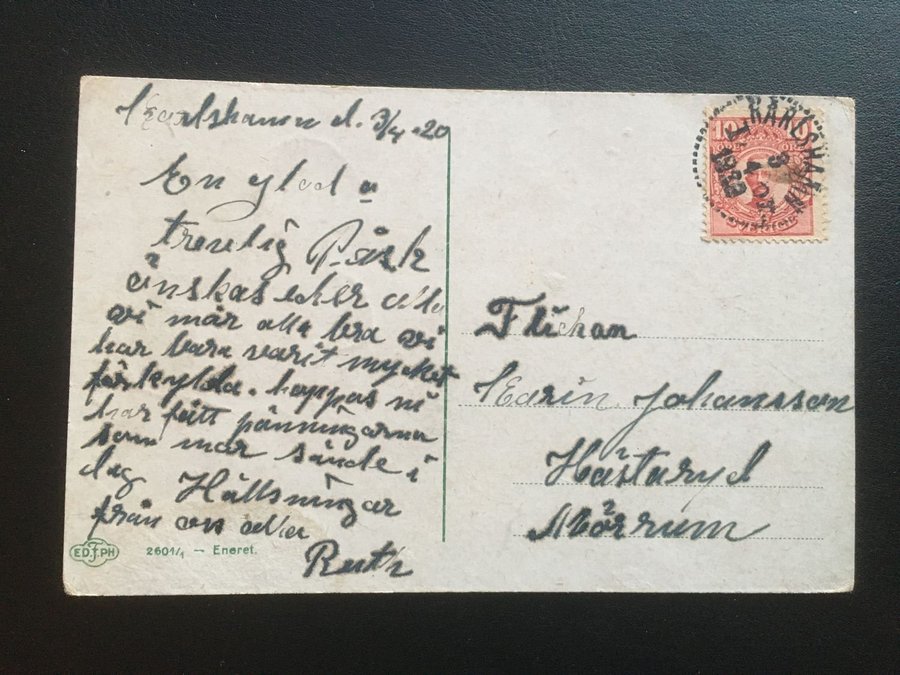 Karlshamn d. 3/4 -20
En glad o
trevlig Påsk
önskas eder alla
vi mår alla bra vi
har bara varit mycket
förkylda. hoppas ni
har fått pänningarna
som mor sände i
dag Hällsningar
från oss alla
Ruth
ED.J.PH
2601/1 — Eneret.
KARLSHAMN
3 4 20
10
10
Flickan
Karin Johansson
Hästaryd
Mörrum